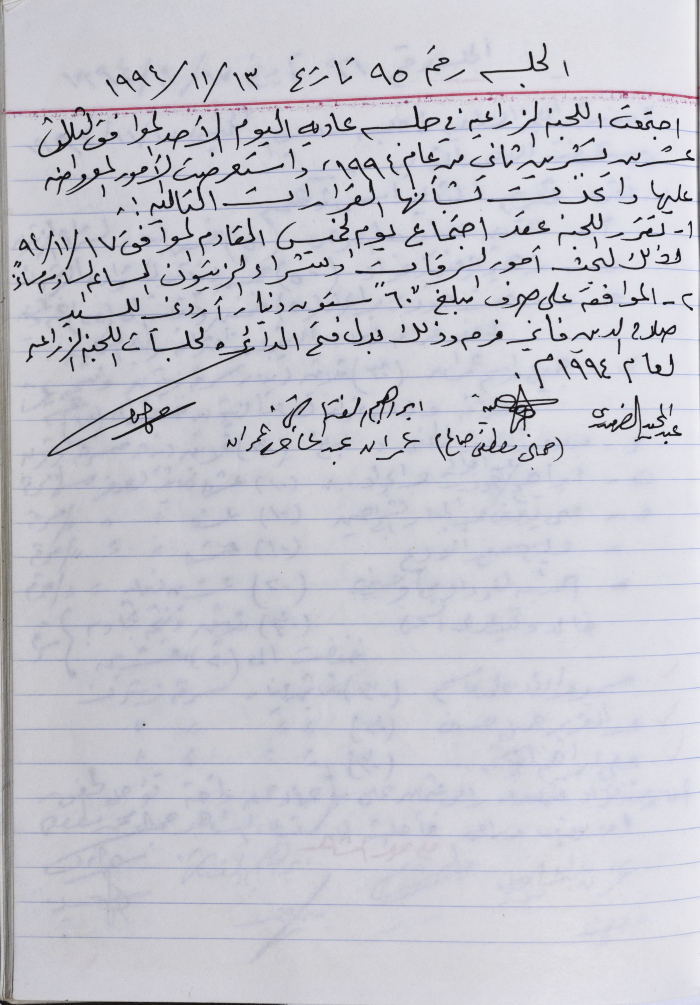 الجلسه رقم ٩٥ تاريخ ١٩٩٤/١١/١٣
اجتمعت اللجنه الزراعيه في جلسه عاديه اليوم الأحد الموافق الثالث
عشر من تشرين ثاني من عام ١٩٩٤، واستعرضت الأمور المعروضه
عليها واتخذت بشأنها القرارات التاليه :.
١- تقرر اللجنه عقد اجتماع يوم الخميس القادم الموافق ٩٤/١١/١٧
وذلك لبحث أمور السرقات وشراء الزيتون الساعه السادسه مساءً
٢- الموافقه على صرف مبلغ "٦٠" ستون دينار أردني للسيد
صلاح الدين فرح وذلك بدل فتح الدائره لجلسات اللجنه الزراعيه
لعام ١٩٩٤م .
عبد المجيد ابراهيم
(حسني مصطفى صالح) عمران عبد الخالق عمران